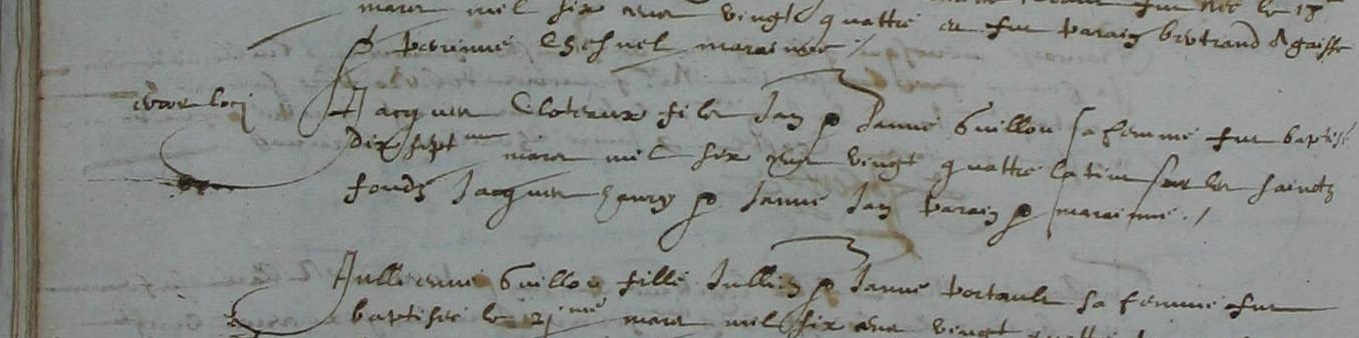 mars mil six cens vingt quattre et fut parain bertrand Agaisse
& perinne Chesnel maraine /
Jacques Cloteaux fils Jan & Janne Guillou sa femme fut baptisé
Dix sept me mars mil six cens vingt quattre la tins sur les saincts
fonds Jacques henry & Janne Jan parain & marainne . /
Jullienne Guillou fille Jullien & Janne portault sa femme fut
baptisée le 21 me mars mil six cens vingt